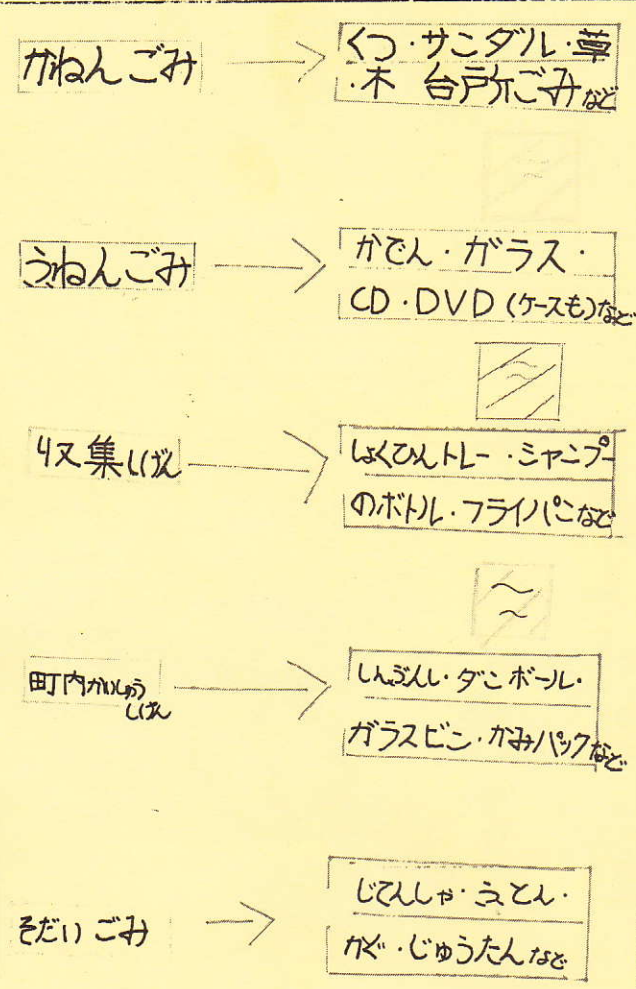 かねんごみ
くつ・サンダル・草
・木 台所ごみなど
ふねんごみ
かでん・ガラス・
CD・DVD(ケースも)など
収集しげん
しょくひんトレー・シャンプー
のボトル・フライパンなど
町内かいしゅう
しげん
しんぶんし・ダンボール・
ガラスビン・かみパックなど
そだいごみ
じてんしゃ・ふとん・
かぐ・じゅうたんなど